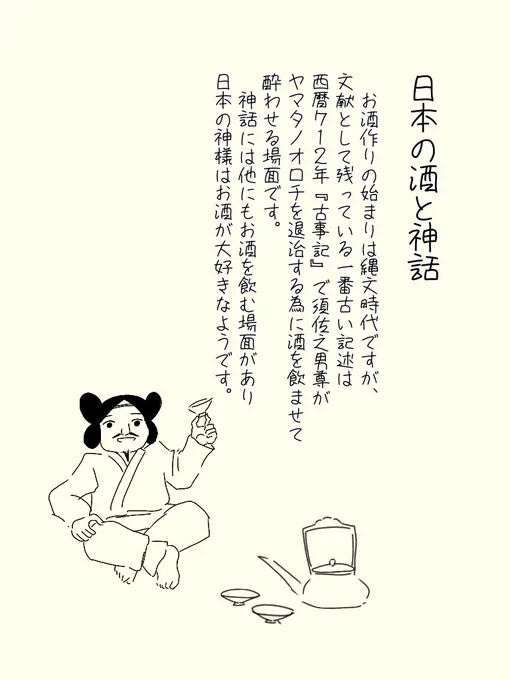 日本の酒と神話
お酒作りの始まりは縄文時代ですが、
文献として残っている一番古い記述は
西暦712年『古事記』で須佐之男尊が
ヤマタノオロチを退治する為に酒を飲ませて
酔わせる場面です。
神話には他にもお酒を飲む場面があり
日本の神様はお酒が大好きなようです。